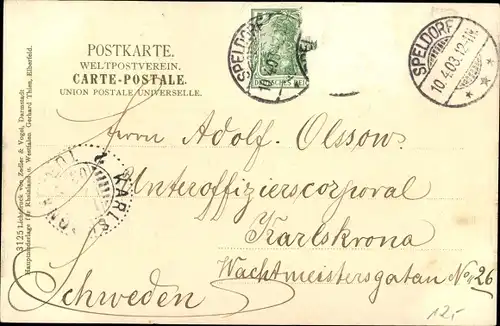 POSTKARTE.
WELTPOSTVEREIN.
CARTE-POSTALE.
UNION POSTALE UNIVERSELLE.
SPELDORF
10.4.03
DEUTSCHES REICH
SPELDORF
10.4.03.12-1N.
Herrn Adolf Olssow.
Unteroffizierscorporal
Karlskrona
Wachtmeistersgatan No 26
Schweden
KARLS
12,-
3125 Lichtdruck von Zedler & Vogel, Darmstadt
Hauptniederlage für Rheinland u. Westfalen Gerhard Thien, Elberfeld.